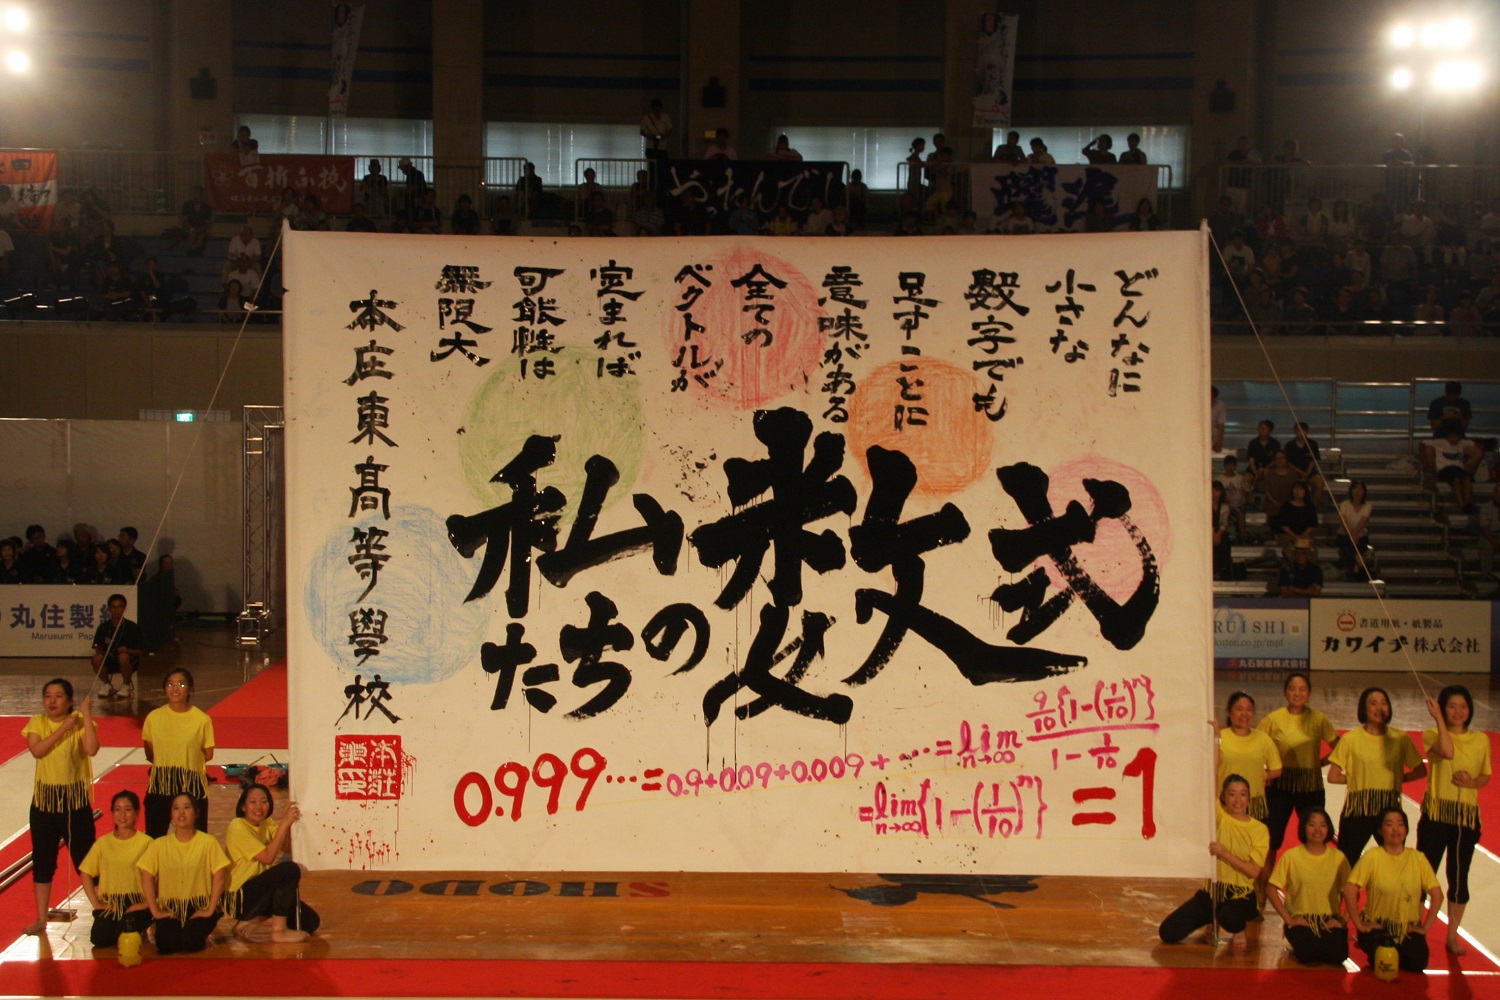 どんなに
小さな
數字でも
足すことに
意味がある
全ての
ベクトルが
定まれば
可能性は
無限大
私たちの数式
本庄東高等學校
0.999…=0.9+0.09+0.009+……=lim n→∞ 9/10{1-(1/10)^n}/1-1/10
=lim n→∞{1-(1/10)^n}=1
百折不撓
丸住製紙
Marusumi Pape
丸石製紙株式会社
書道用紙・紙製品
カワイチ株式会社
SHODO